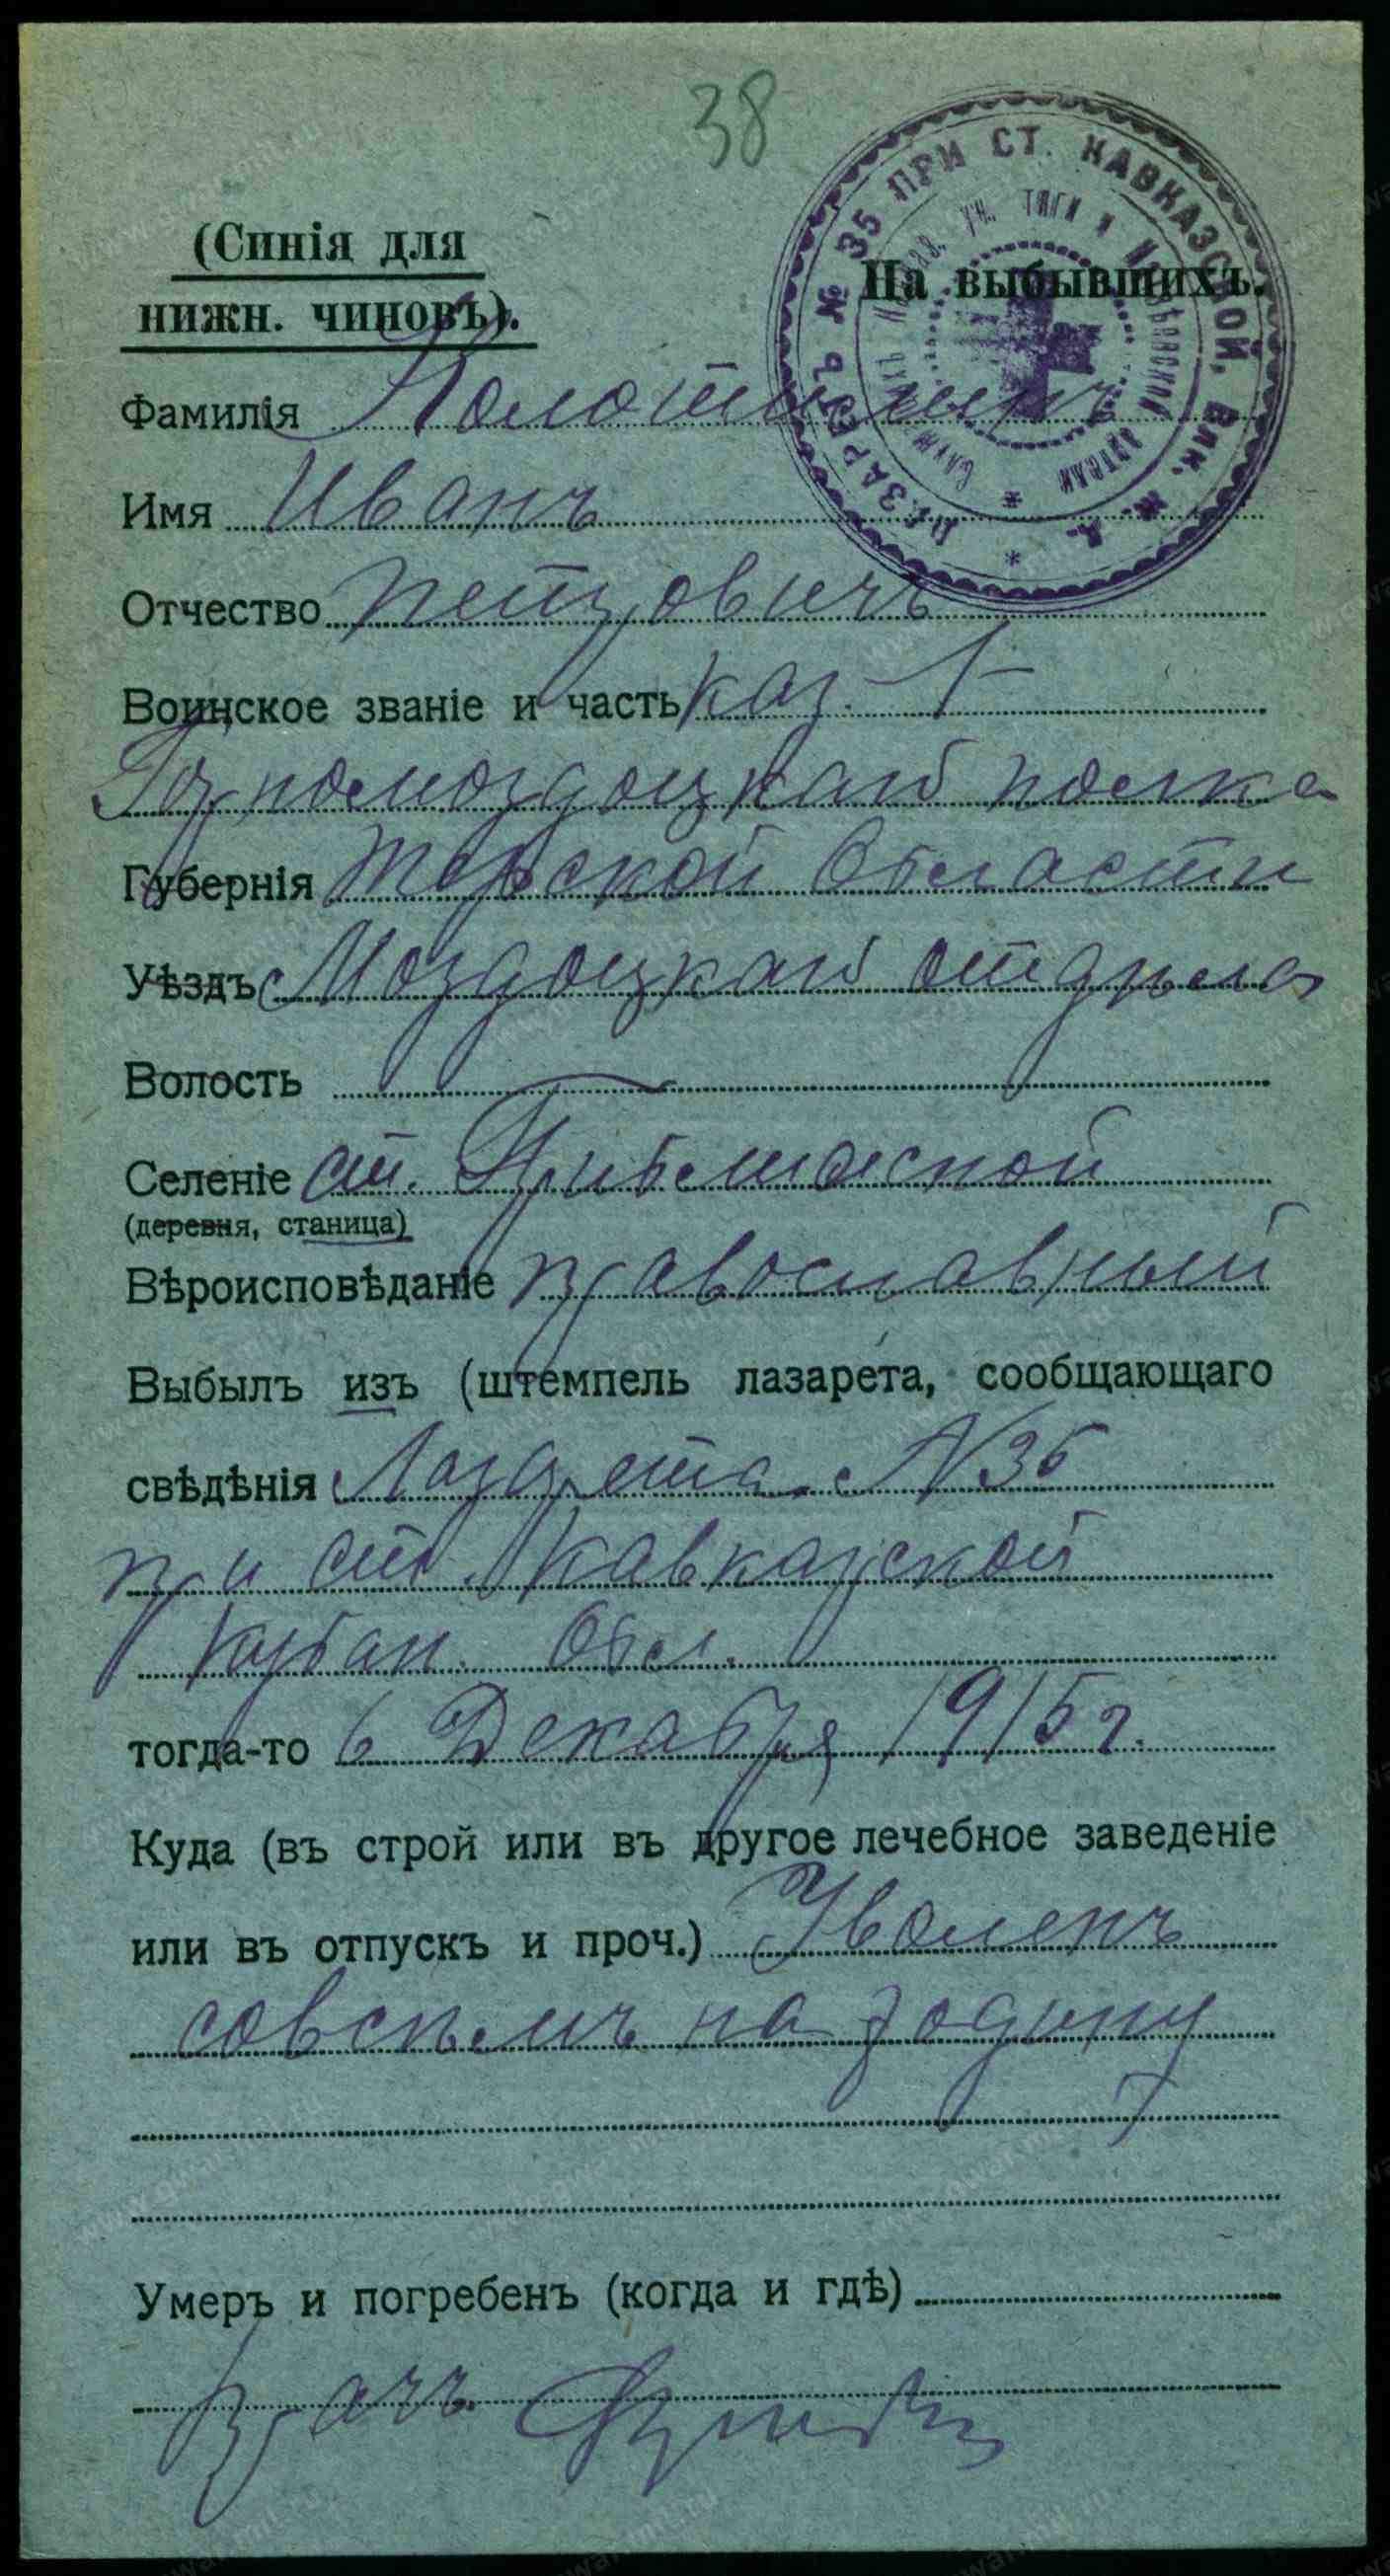 38
(Синія для
нижн. чиновъ).
На выбывшихъ.
ЛАЗАРЕТЪ № 35 ПРИ СТ. КАВКАЗСКОЙ, Влк. Ж. Д.
Фамилія
Имя Иванъ
Отчество Петровичъ
Воинское званіе и часть каз. 1
Горпомоздоцкаго полка
Губернія Терской Области
Уѣздъ Моздоцкаго отдѣла
Волость
Селеніе ст.
(деревня, станица)
Вѣроисповѣданіе православный
Выбылъ изъ (штемпель лазарета, сообщающаго
свѣдѣнія Лазарета № 35
при ст. Кавказской
Кубан. Обл.
тогда-то 6 Декабря 1915 г.
Куда (въ строй или въ другое лечебное заведеніе
или въ отпускъ и проч.) Уволенъ
совсѣмъ на родину
Умеръ и погребенъ (когда и гдѣ)
Врачъ